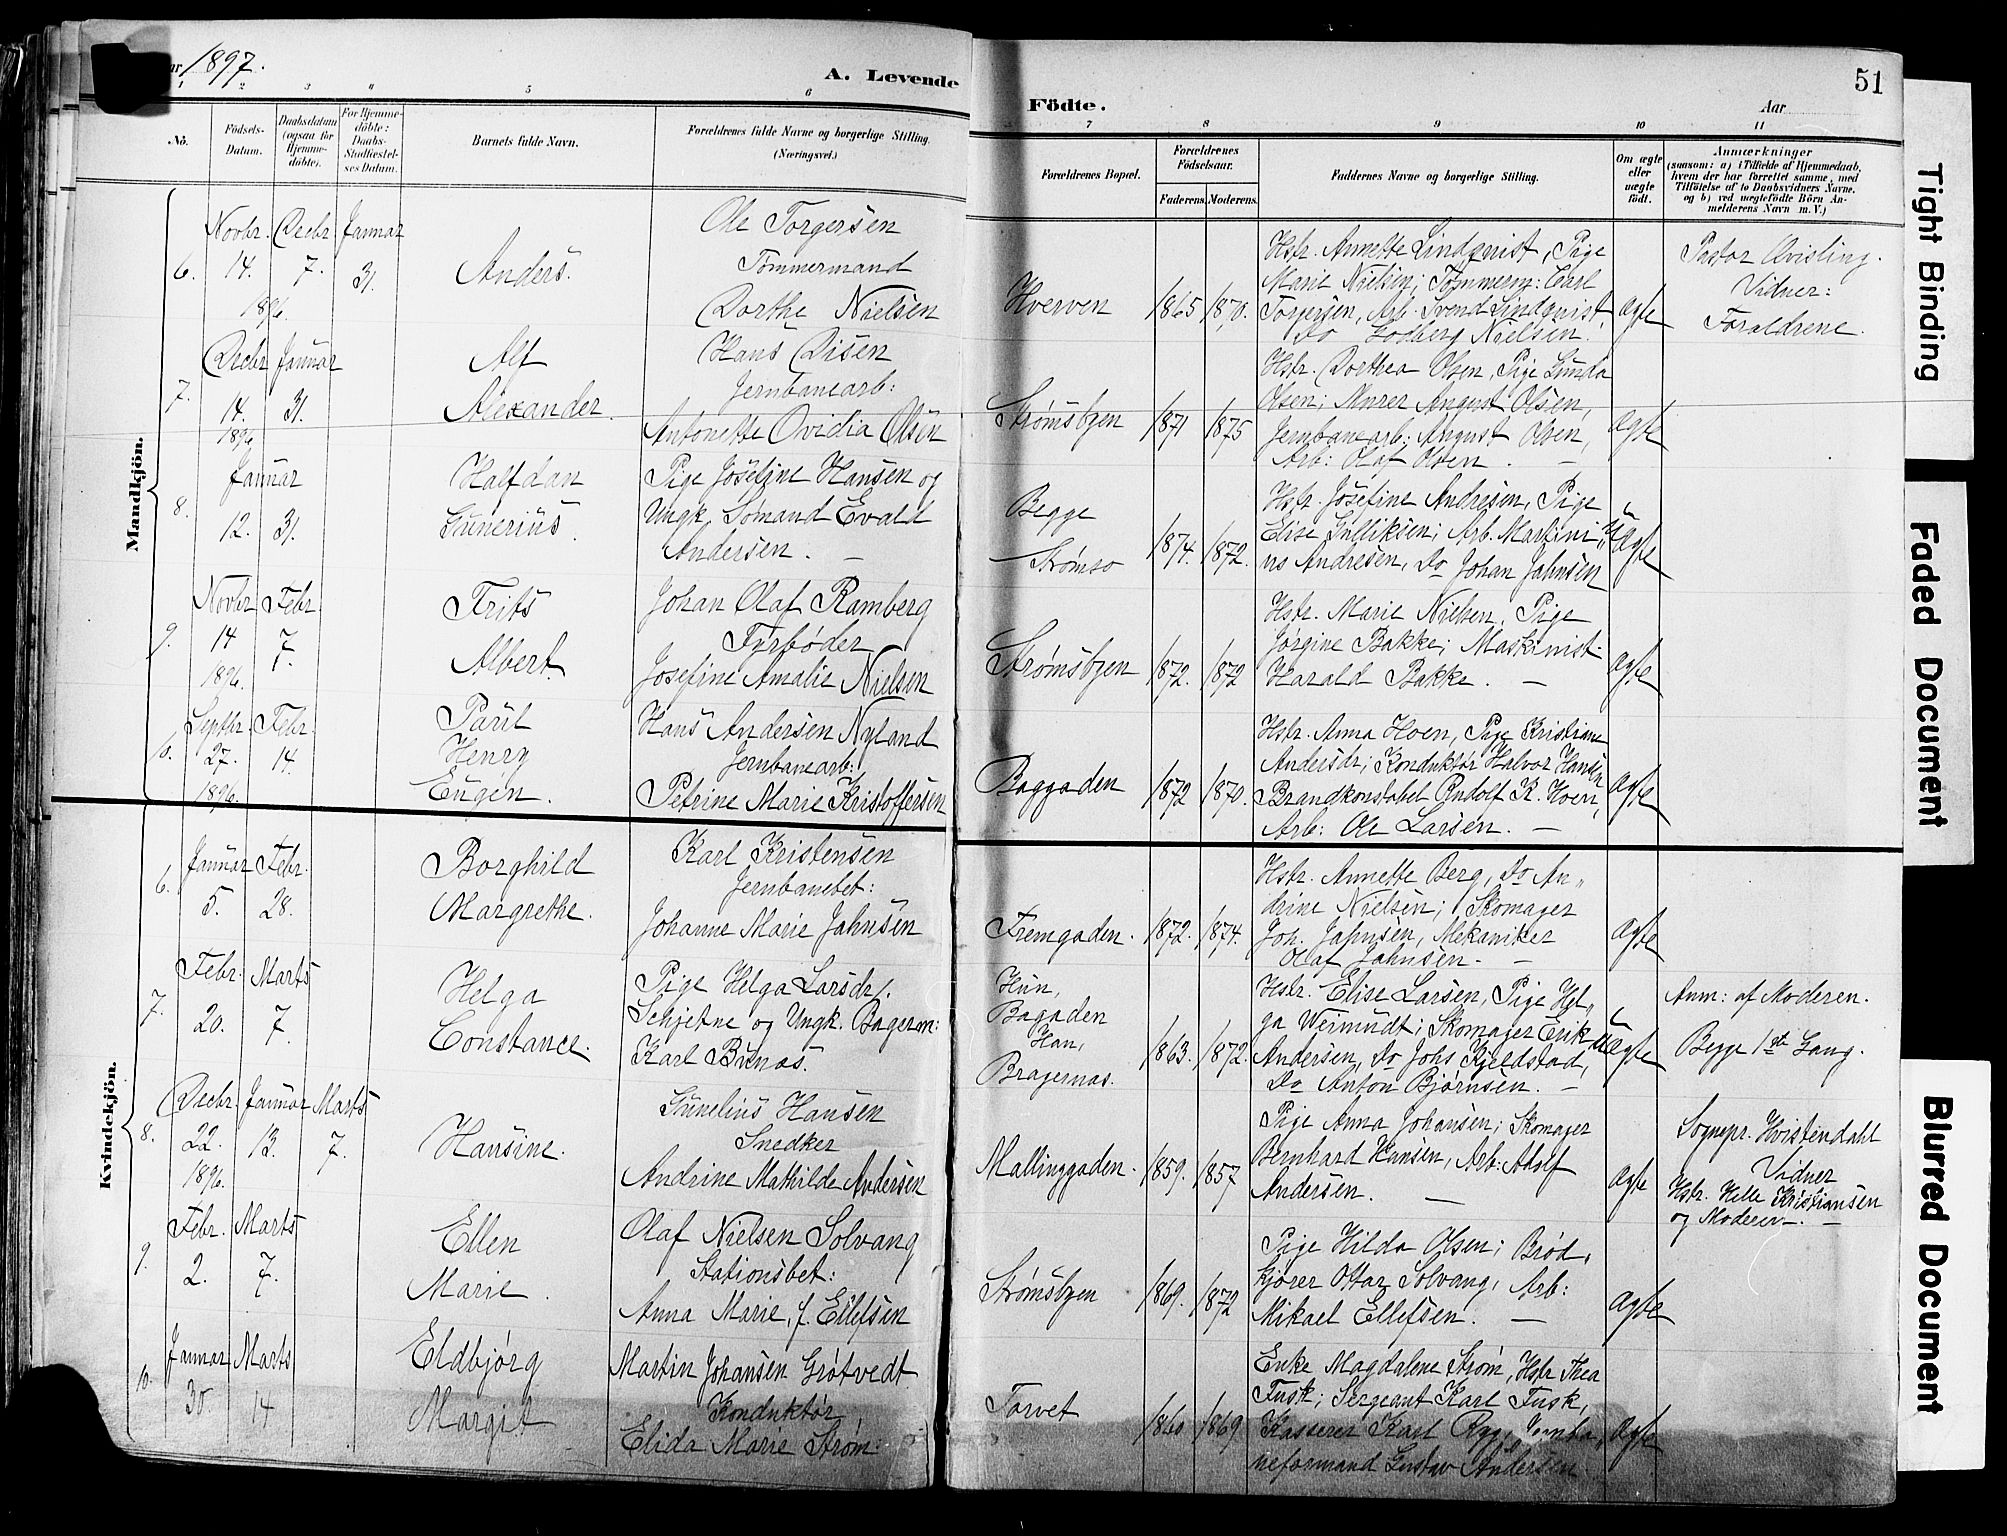 Aar 1897.
A. Levende
Födte.
Aar
51
1 2 3 4 5 6
7 8 9 10 11
No.
Födsels-Datum.
Daabsdatum (ogsaa for Hjemmedöbte).
For Hjemmedöbte: Daabs-Stadfæstelses Datum.
Barnets fulde Navn.
Forældrenes fulde Navne og borgerlige Stilling.
(Næringsvei.)
Forældrenes Bopæl.
Forældrenes Födselsaar.
Faderens. Moderens.
Faddernes Navne og borgerlige Stilling.
Om ægte eller uægte födt.
Anmærkninger
(saasom: a) i Tilfælde af Hjemmedaab, hvem der har forrettet samme, med Tilföielse af to Daabsvidners Navne. og b) ved uægtefödte Börn Anmelderens Navn m. V.)
Mandkjön.
6.
Novbr. 14. 1896.
Decbr 7.
Januar 31.
Anders.
Ole Torgersen
Tömmermand
Dorthe Nielsen
Hverven
1865
1870.
Hstr. Annette Lindqvist, Pige
Marie Nielsen; Tømmerm: Carl
Torgersen, Arb. Svend Lindqvist,
Do Lodberg Nielsen.
ægte
Pastor Qvisling.
Vidner:
Forældrene.
7.
Decbr 14. 1896
Januar 31.
Alf
Alexander.
Hans Disen
Jernbanearb:
Antonette Ovidia Olsen
Strømsbyen
1871
1875
Hstr. Dorthea Olsen, Pige Lunda
Olsen; Murer August Olsen,
Jernbanearb: August Olsen,
Arb: Olaf Olsen. —
ægte
8.
Januar
12. 31.
Halfdan
Gunerius.
Pige Josefine Hansen og
Ungk. Sømand Evald
Andersen. —
Begge
Strømsø
1874.
1872.
Hstr. Josefine Andresen, Pige
Elise Gulliksen; Arb. Martini-
us Andresen, Do Johan Jahnsen
Uægte
9.
Novbr 14 1896.
Febr. 7.
Frits
Albert.
Johan Olaf Ramberg
Fyrbøder
Josefine Amalie Nielsen
Strømsbyen
1872.
1872
Hstr. Marie Nielsen, Pige
Jørgine Bakke; Maskinist
Harald Bakke. —
ægte
10.
Septbr. 27. 1896.
Febr. 14.
Paul
Henry
Eugen.
Hans Andersen Nyland
Jernbanearb:
Petrine Marie Kristoffersen
Baggaden
1872
1870.
Hstr. Anna Hoen, Pige Kristiane
Andersdr; Konduktør Halvor Hansen
Brandkonstabel Rudolf K. Hoen,
Arb: Ole Larsen. —
ægte
Kvindekjön.
6.
Januar 5.
Febr. 28.
Borghild
Margrethe.
Karl Kristensen
Jernbanebet:
Johanne Marie Jahnsen
Fremgaden.
1872.
1874.
Hstr. Annette Berg, Do An-
drine Nielsen; Skomager
Joh. Jahnsen, Mekaniker
Olaf Jahnsen. —
ægte
7.
Febr. 20.
Marts 7.
Helga
Constance.
Pige Helga Larsdr.
Schjetne og Ungk. Bagerm:
Karl Bunæs.
Hun,
Bagaden
Han,
Bragernæs.
1863.
1872.
Hstr. Elise Larsen, Pige Hel-
ga Wermudt; Skomager Erik
Andersen, Do Johs Kjeldstad,
Do Anton Bjørnsen. —
Uægte
Anm: af Moderen.
Begge 1ste Gang.
8.
Decbr. 22. 1896.
Januar 13.
Marts 7.
Hansine.
Gunelius Hansen
Snedker
Andrine Mathilde Andersen
Mallinggaden.
1859.
1857
Pige Anna Johansen; Skomager
Bernhard Hansen, Arb: Adolf
Andersen. —
ægte
Sognepr. Hvistendahl
Vidner
Hstr. Helle Kristiansen
og Moderen. —
9.
Febr. 2.
Marts 7.
Ellen
Marie.
Olaf Nielsen Solvang
Stationsbet:
Anna Marie, f. Ellefsen
Strømsbyen
1869.
1872
Pige Hilda Olsen; Brød-
kjører Ottar Solvang, Arb:
Mikael Ellefsen. —
ægte
10.
Januar 30
Marts 14
Eldbjørg
Margit
Martin Johansen Grøtvedt
Konduktør
Elida Marie Strøm
Torvet
1860
1869
Enke Magdalene Strøm, Hstr Thea
Fusk; Sergeant Karl Fusk,
Kasserer Karl Ryg, Jernba-
neformand Gustav Andersen
ægte
Tight Binding
Faded Document
Blurred Document